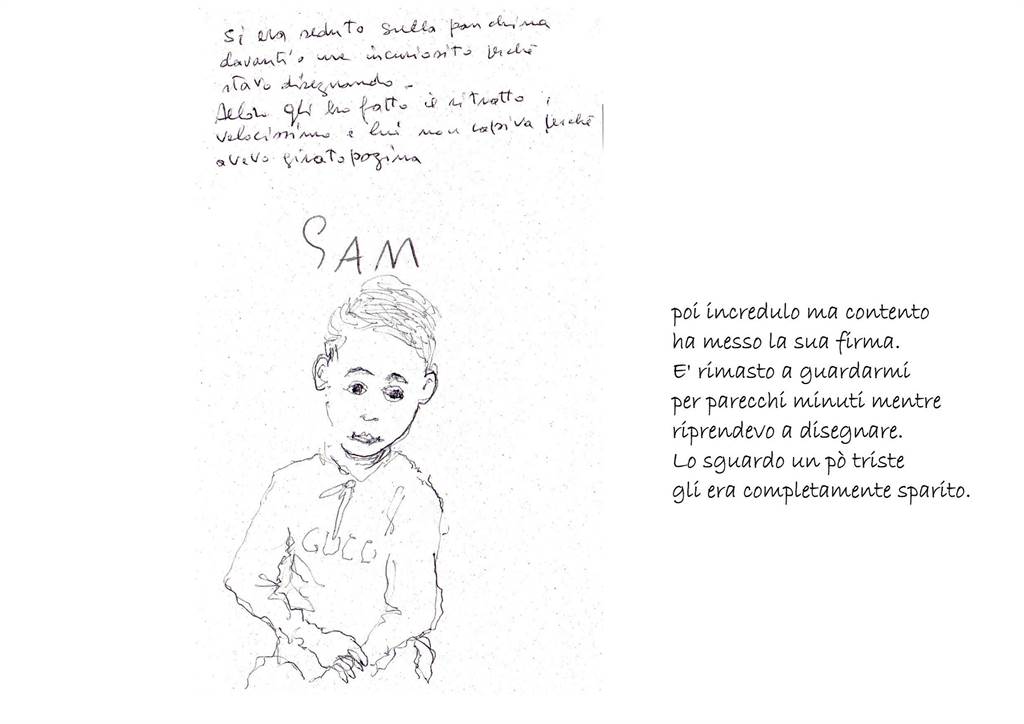 Si era seduto sulla panchina
davanti a me incuriosito perché
stavo disegnando.
Allora gli ho fatto il ritratto,
velocissimo e lui non capiva perché
avevo girato pagina
SAM
GUCCI
poi incredulo ma contento
ha messo la sua firma.
E' rimasto a guardarmi
per parecchi minuti mentre
riprendevo a disegnare.
Lo sguardo un pò triste
gli era completamente sparito.